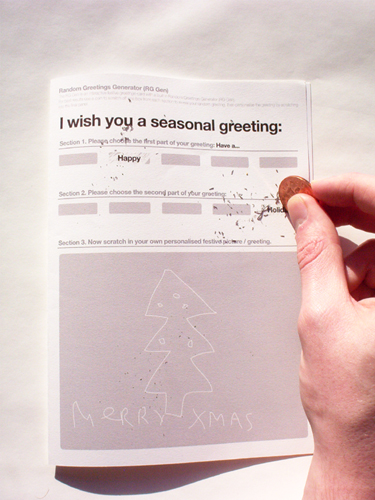 Random Greetings Generator (RG Gen)
I wish you a seasonal greeting:
Section 1. Please choose the first part of your greeting: Have a...
Happy
Section 2. Please choose the second part of your greeting:
Holid
Section 3. Now scratch in your own personalised festive picture / greeting.
MERRY XMAS